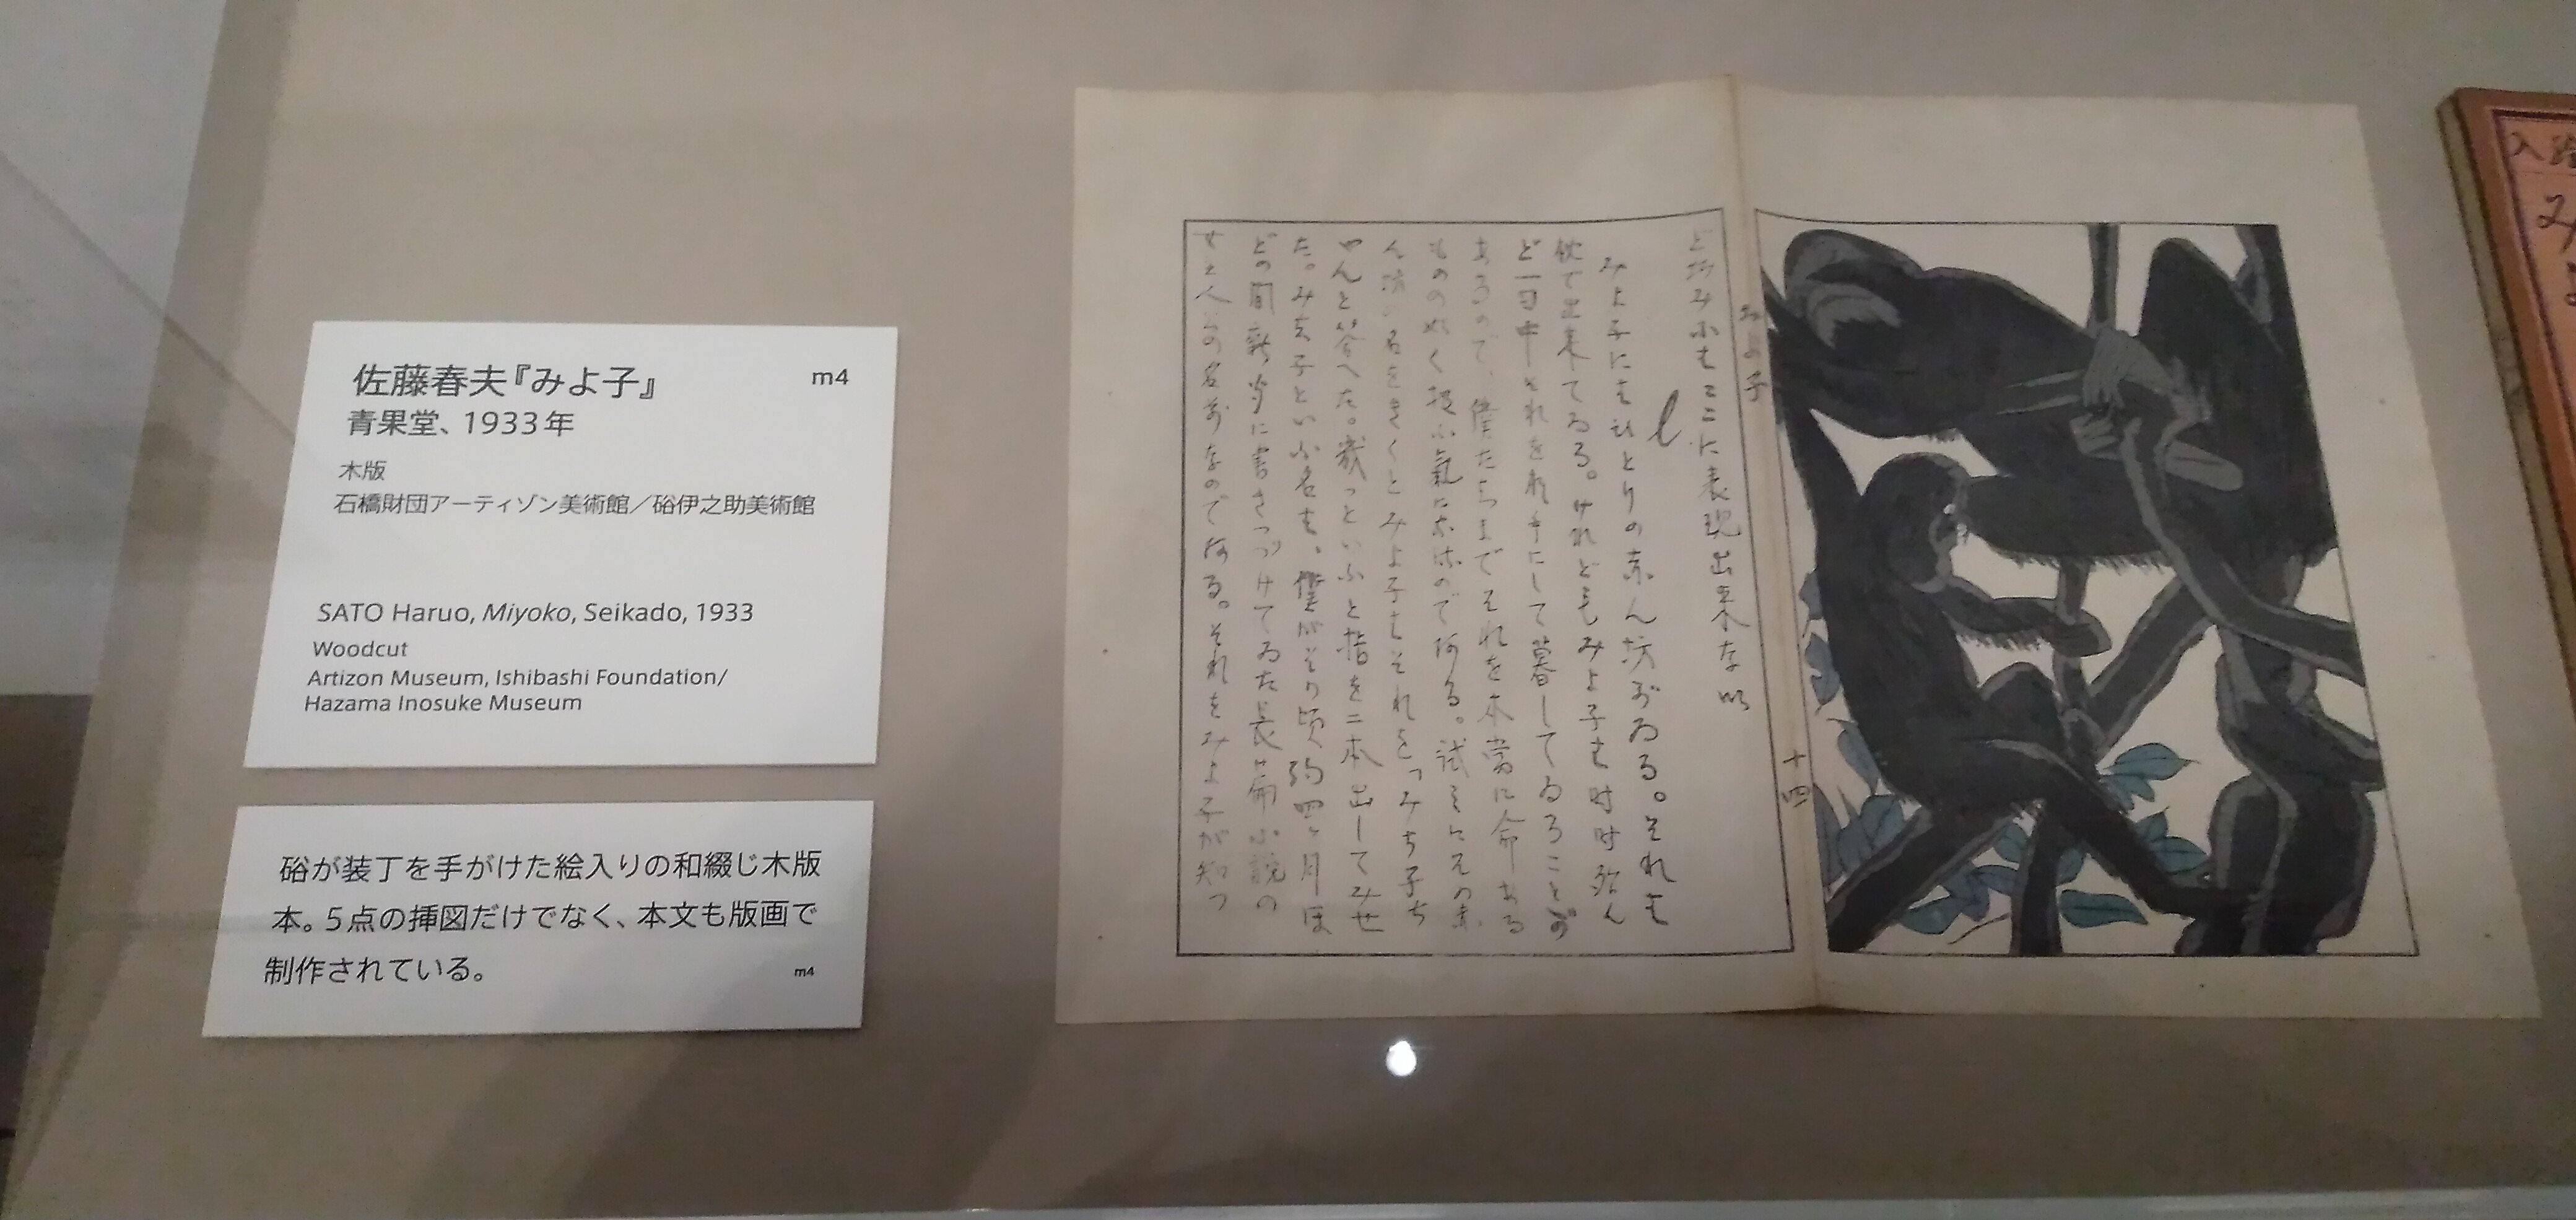 佐藤春夫『みよ子』
m4
青果堂、1933年
木版
石橋財団アーティゾン美術館／硲伊之助美術館
SATO Haruo, Miyoko, Seikado, 1933
Woodcut
Artizon Museum, Ishibashi Foundation/
Hazama Inosuke Museum
硲が装丁を手がけた絵入りの和綴じ木版
本。5点の挿図だけでなく、本文も版画で
制作されている。
m4
十四
ここに表現出来な
みよ子にもひとりの赤ん坊がゐる。それも
で出来てゐる。けれどもみよ子も時時
ど一日中それをれ手にして暮してゐることが
あるので、僕たちまでそれを本當に命ある
ものの如く扱ふ氣になるのである。試みにその赤
ん坊の名をきくとみよ子もそれを「みち子ち
やんと答へた。歳っといふと指を二本出してみせ
た。みち子といふ名も、僕がその頃約四ヶ月ほ
どの間新聞に書きつづけてゐた長篇小説の
女主人公の名前なのである。それをみよ子が知つ